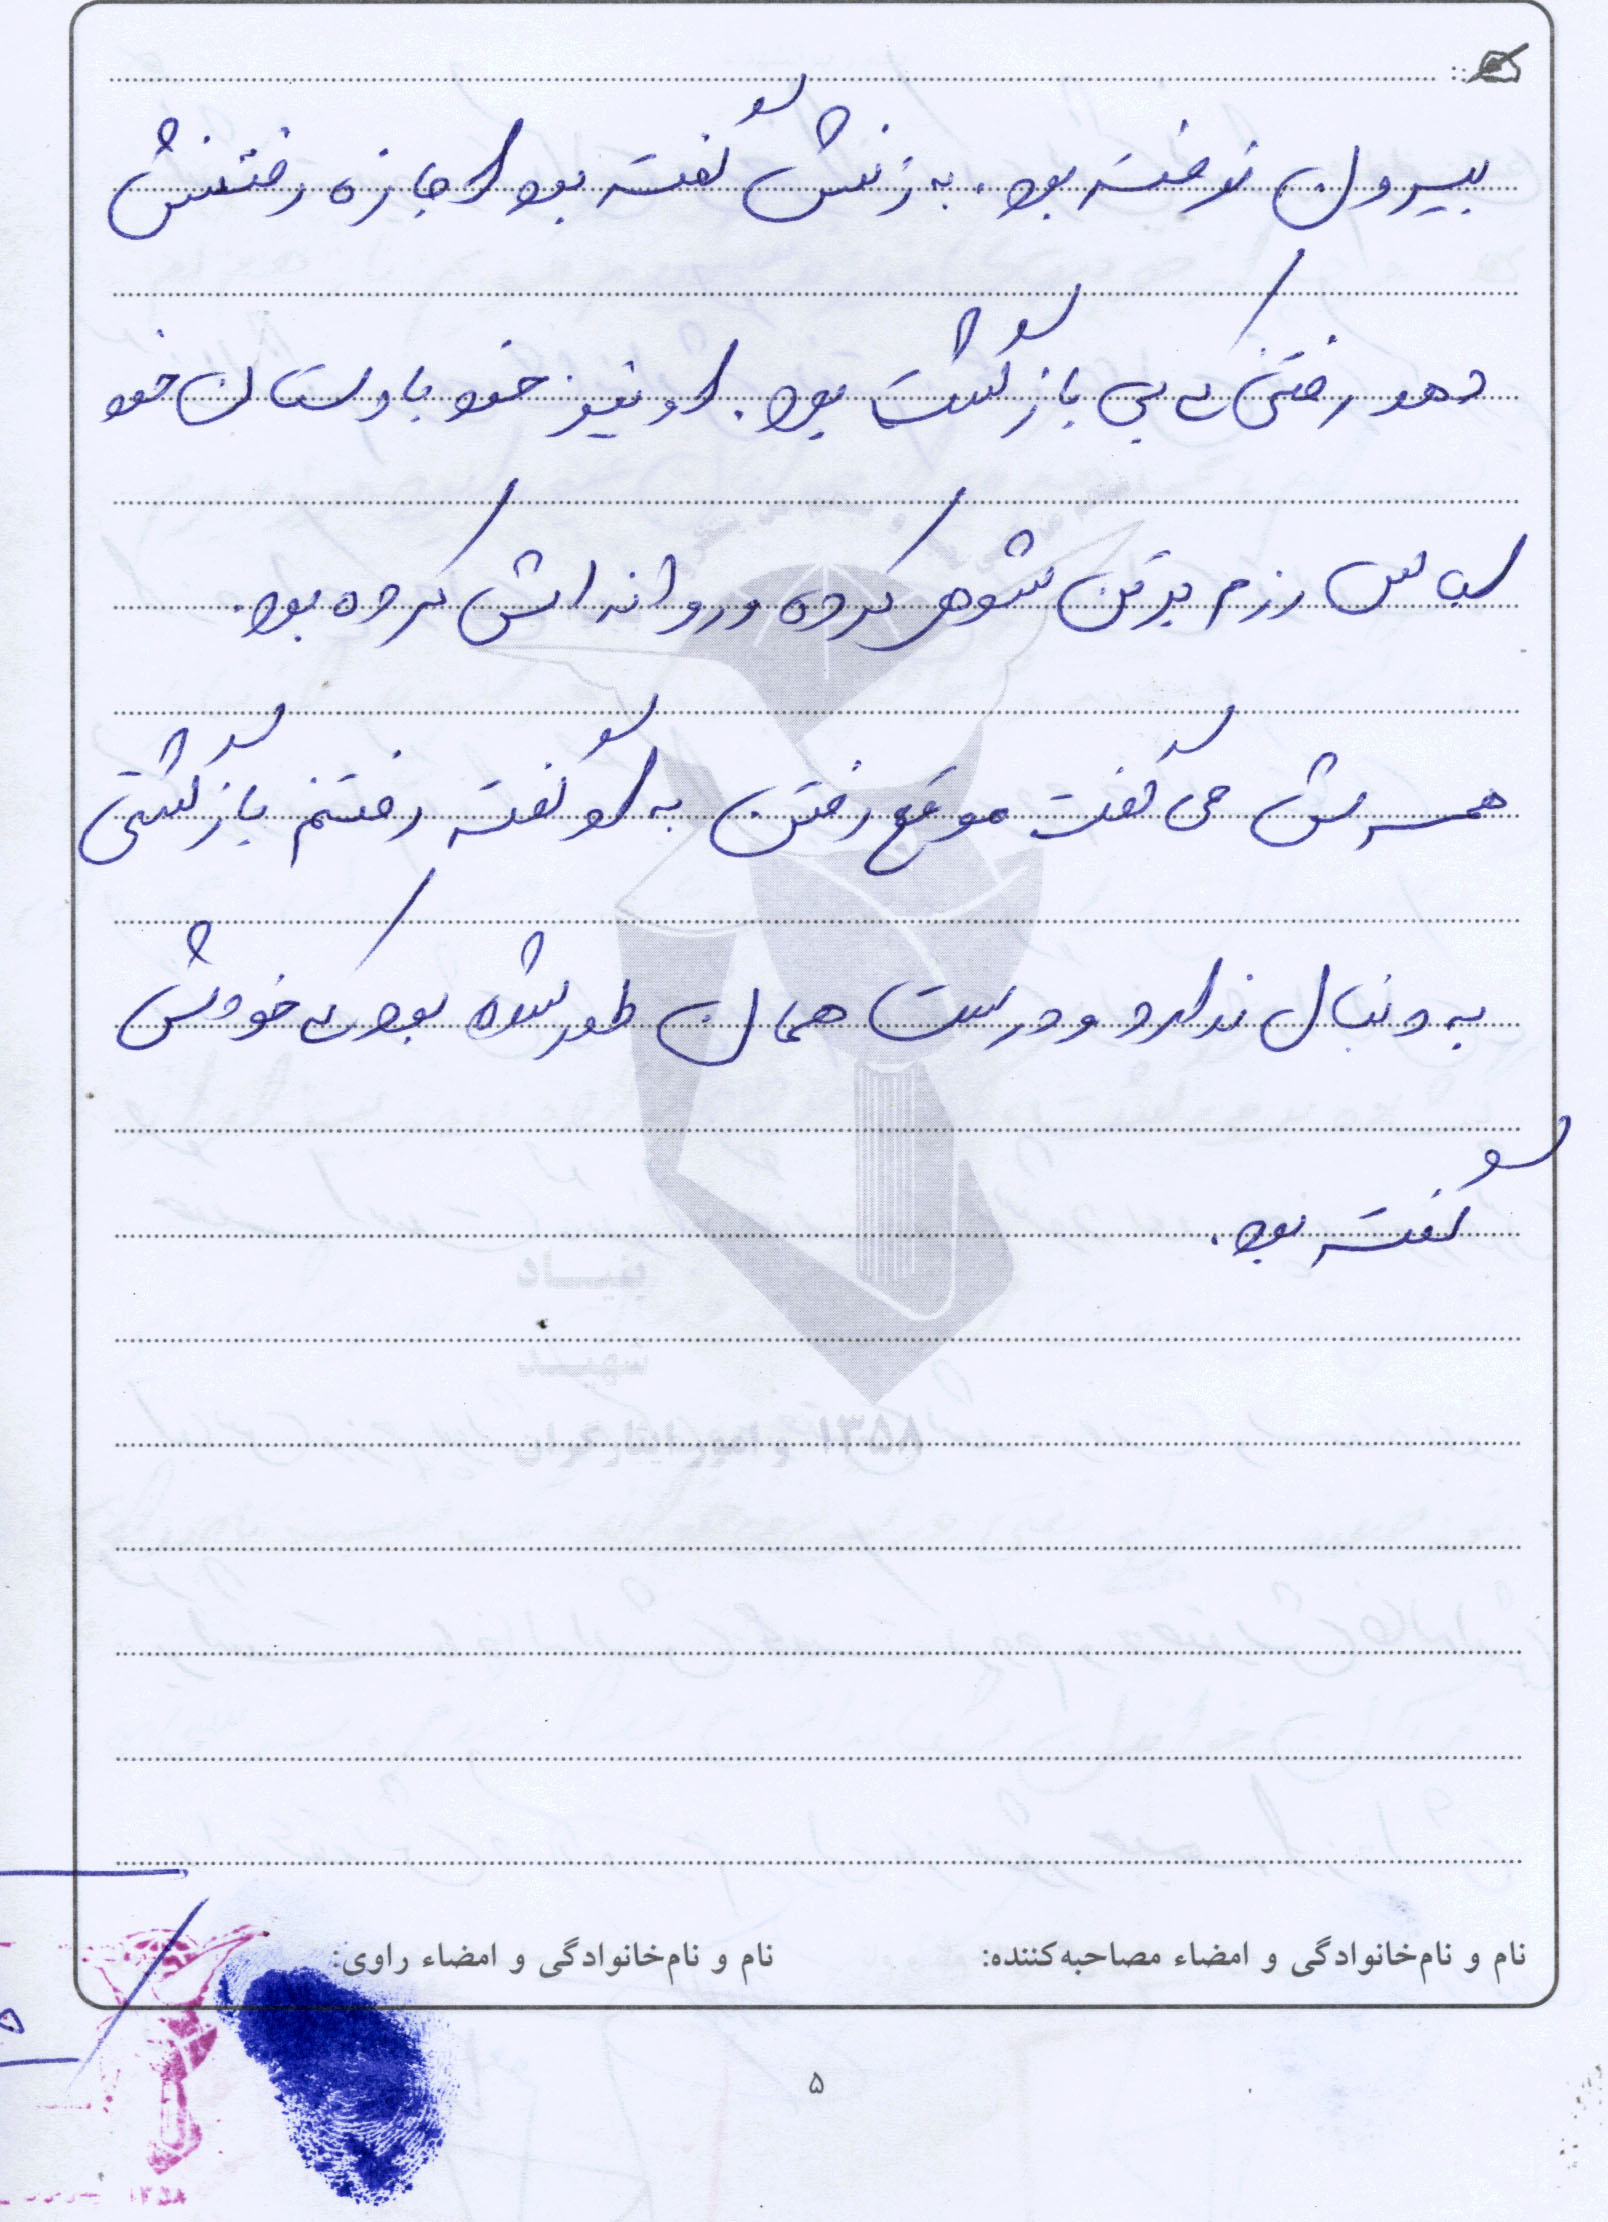 بیرون نرفته بود. به زنش گفته بود اجازه رفتنش
دهد رفتن که بی بازگشت بود. او نیز خود با دستان خود
لباس رزم بر تن شوهر کرده و روانه اش کرده بود.
همسرش می گفت موقع رفتن به او گفته رفتنم بازگشتی
به دنبال ندارد و درست همان طور شده بود که خودش
گفته بود.
بنیاد
شهید
۱۳۵۸ و امور ایثارگران
نام و نام‌خانوادگی و امضاء مصاحبه‌کننده:
نام و نام‌خانوادگی و امضاء راوی:
۵
۱۳۵۸